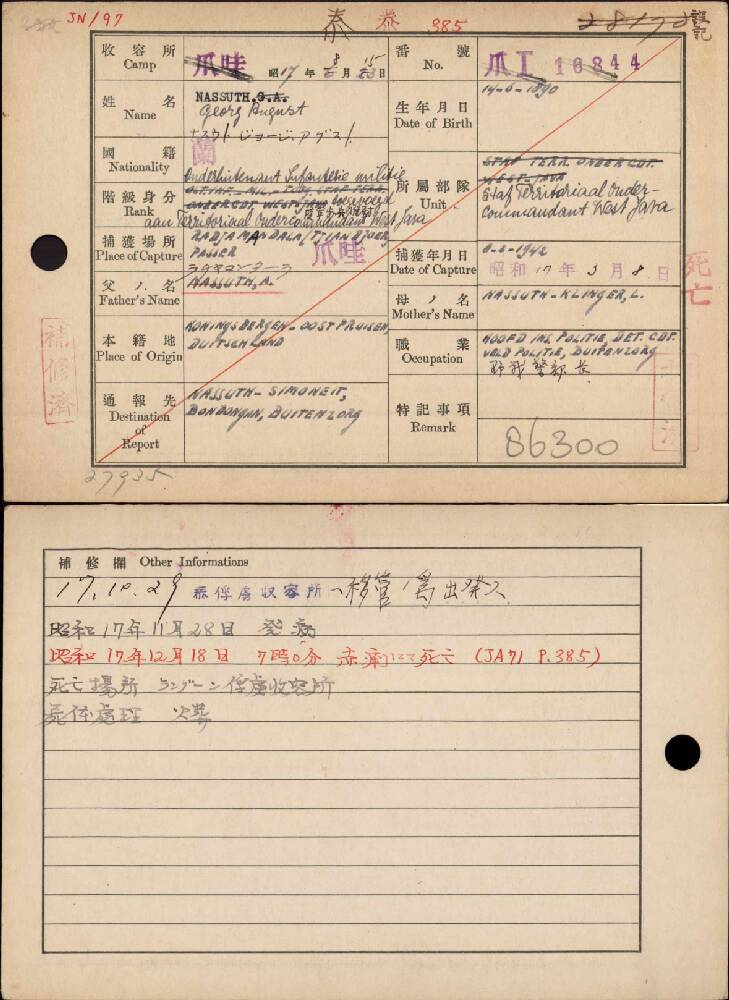 JN/197 泰 泰 385 28178 誤記
收容所 Camp 爪哇 昭17年8月15日
番號 No. 爪 I 16844
姓名 Name NASSUTH, G.A.
Georg August
ナスウト ジョージ.アグスト
生年月日 Date of Birth 14-6-1890
國籍 Nationality 蘭
階級身分 Rank Onderluitenant Infanterie militie
toegevoegd
aan Territoriaal Ondercommandant West Java
所屬部隊 Unit STAF TERR. ONDERCDT.
WEST-JAVA
Staf Territoriaal Onder-
Commandant West Java
捕獲場所 Place of Capture RADJAMANDALA (TJIANDJOER)
PASSER 爪哇
捕獲年月日 Date of Capture 8-3-1942
昭和17年3月8日
死亡
父ノ名 Father's Name NASSUTH, A.
母ノ名 Mother's Name NASSUTH-KLINGER, L.
本籍地 Place of Origin KONINGSBERGEN-OOST PRUISEN,
DUITSCHLAND
職業 Occupation HOOFD INS. POLITIE, DET. CDT.
VELD POLITIE, BUITENZORG
野戰警部長
補修濟
通報先 Destination of Report NASSUTH-SIMONEIT,
BONDONGAN, BUITENZORG
特記事項 Remark 86300
27935
補修欄 Other Informations
17.10.29 泰俘虜収容所へ移管ノ為出発ス
昭和17年11月28日 発病
昭和17年12月18日 7時0分 赤痢にて死亡 (JA71 P.385)
死亡場所 ラングーン俘虜收容所
死体處理 火葬